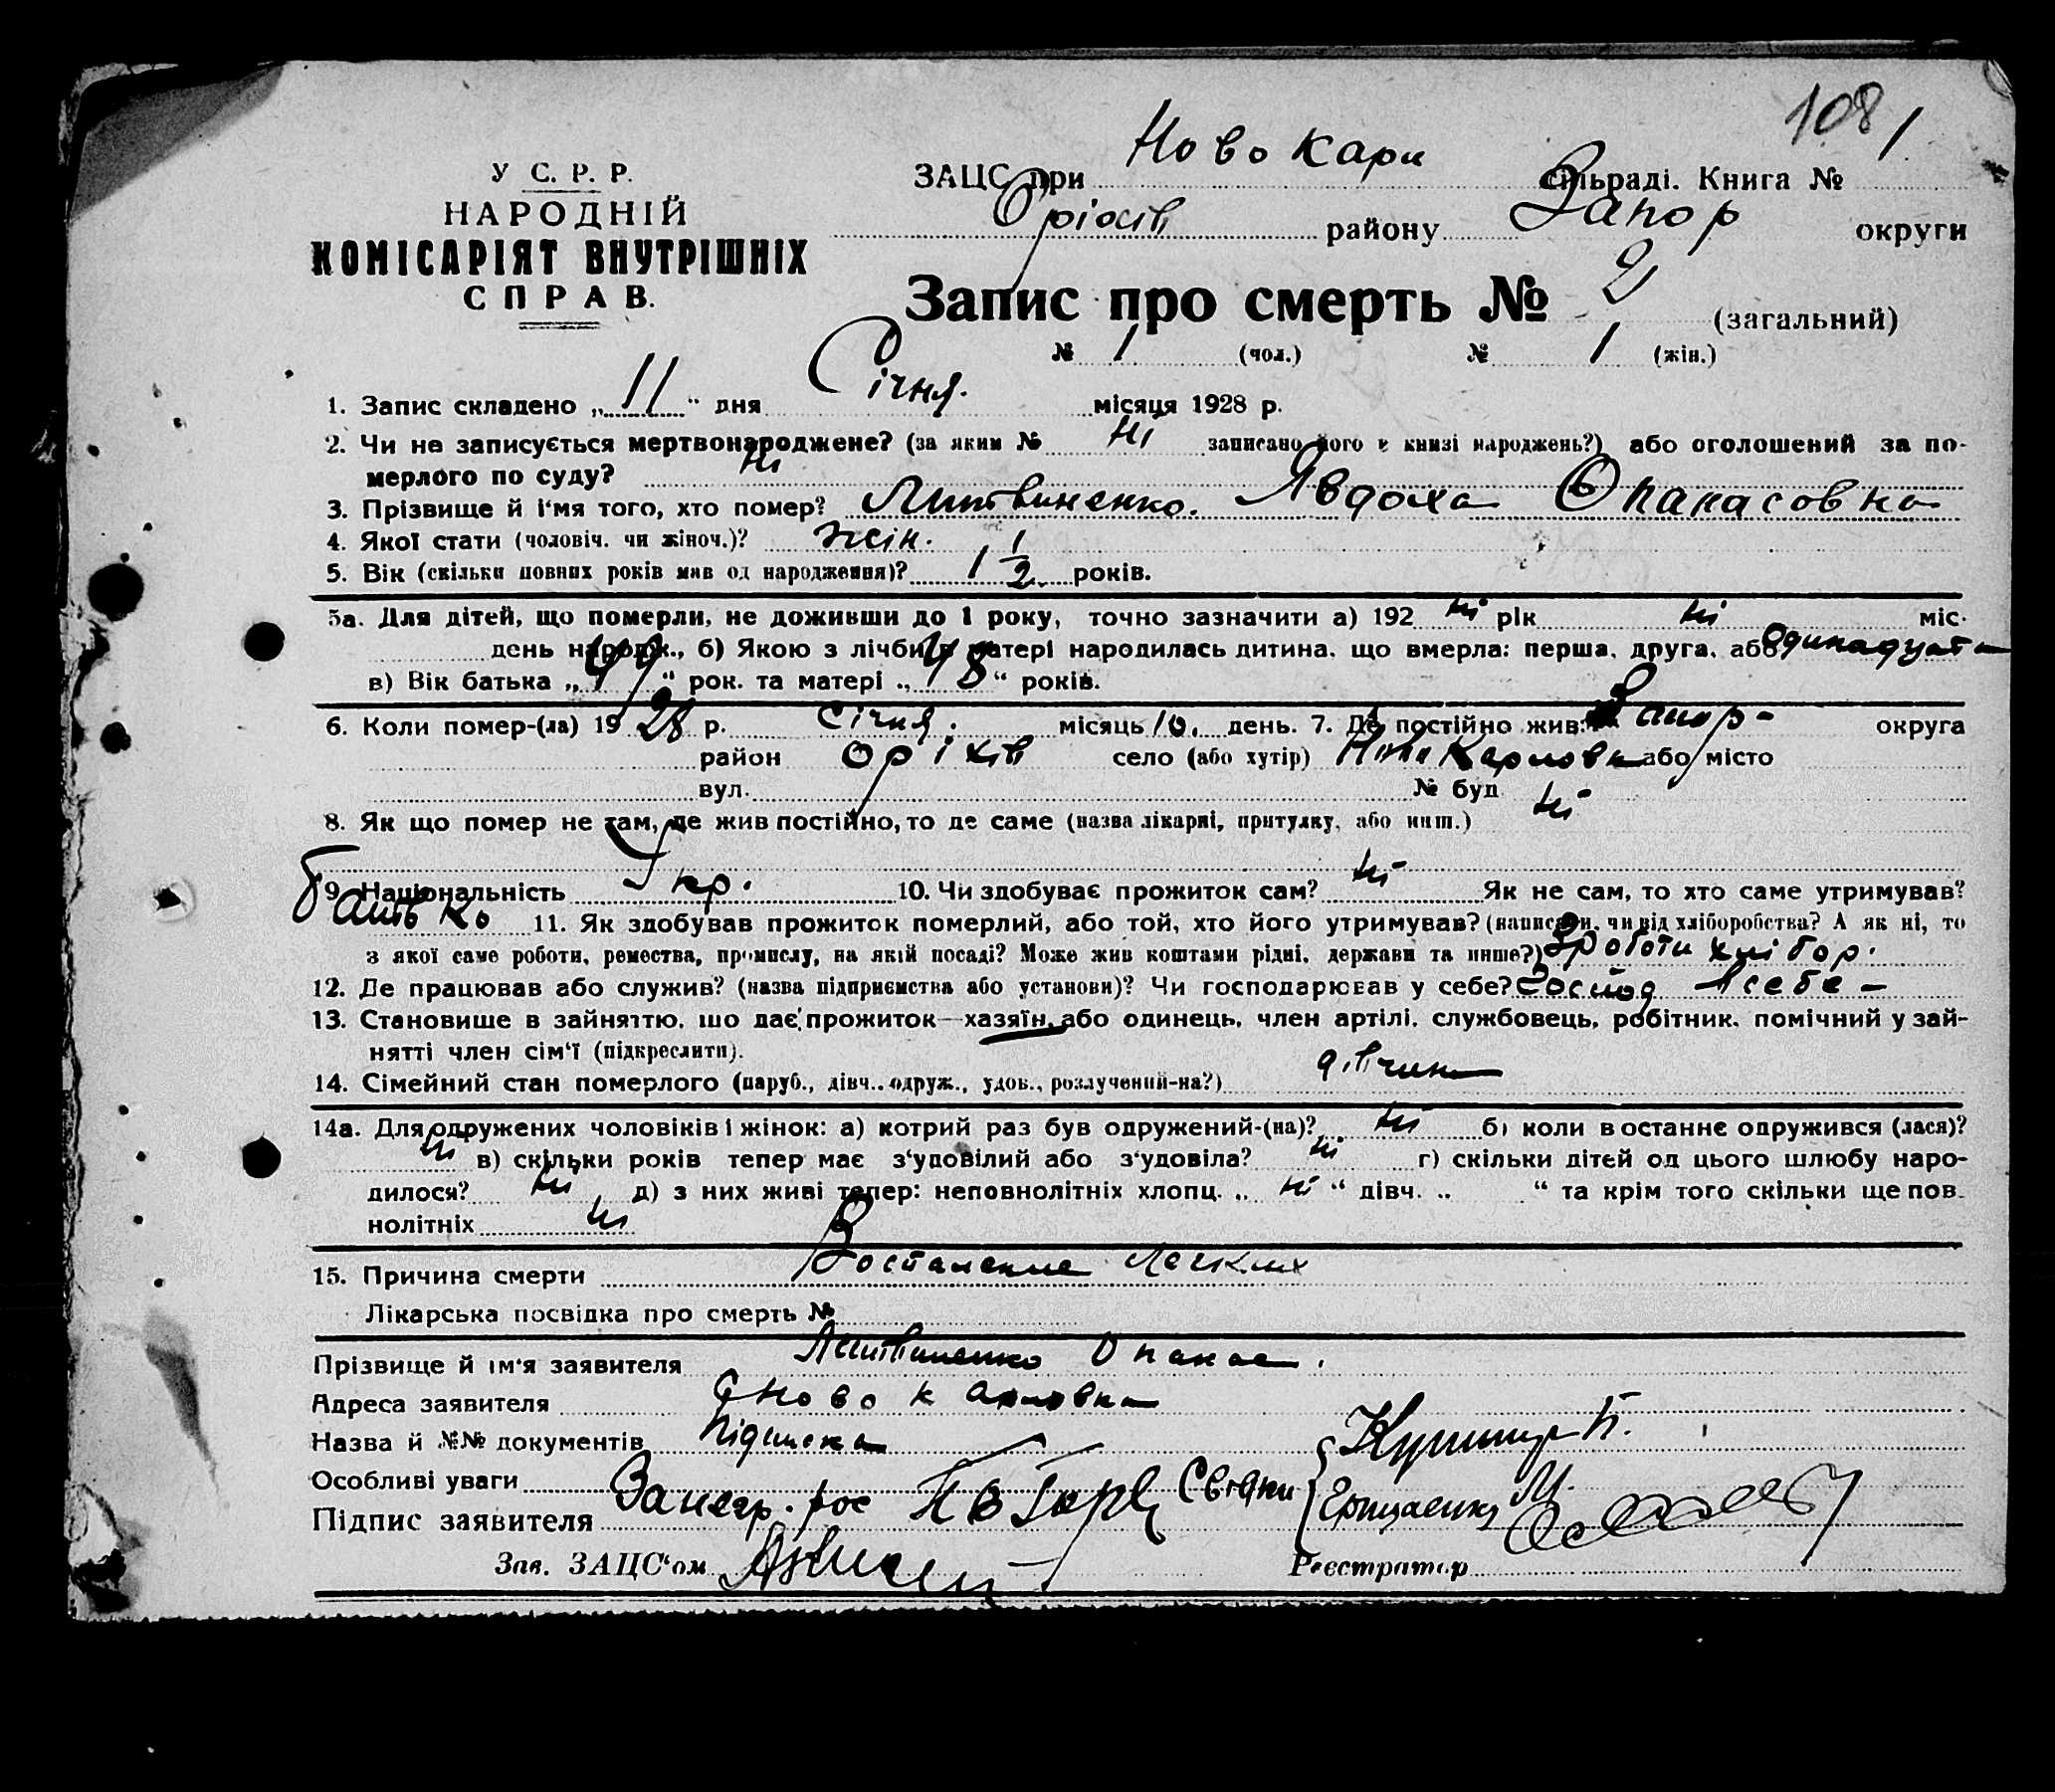 108 1
У С. Р. Р.
НАРОДНІЙ
КОМІСАРІЯТ ВНУТРІШНІХ
СПРАВ.
ЗАЦС при Ново Карл сільраді. Книга №
Оріхів району Запор округи
Запис про смерть № 2 (загальний)
№ 1 (чол.) № 1 (жін.)
1. Запис складено „ 11 “ дня Січня. місяця 1928 р.
2. Чи не записується мертвонароджене? (за яким № ні записано його в книзі народжень?) або оголошений за по-
мерлого по суду? ні
3. Прізвище й ім'я того, хто помер? Литвиненко. Явдоха Опанасовна
4. Якої стати (чоловіч. чи жіноч.)? жін.
5. Вік (скільки повних років мав од народження)? 1 1/2 років.
5а. Для дітей, що померли, не доживши до 1 року, точно зазначити а) 192 ні рік ні міс.
день народж., б) Якою з лічби в матері народилась дитина, що вмерла: перша, друга, або одинадцята
в) Вік батька „ 49 “ рок. та матері „ 48 “ років.
6. Коли помер-(ла) 19 28 р. Січня. місяць 10. день. 7. Де постійно жив: Запор- округа
район Оріхів село (або хутір) Ново Карловка або місто
вул. № буд ні
8. Як що помер не там, де жив постійно, то де саме (назва лікарні, притулку, або инш.)
9. Національність Укр. 10. Чи здобуває прожиток сам? ні Як не сам, то хто саме утримував?
батько 11. Як здобував прожиток померлий, або той, хто його утримував? (написати, чи від хліборобства? А як ні, то
з якої саме роботи, ремества, промислу, на якій посаді? Може жив коштами рідні, держави та инше?) З роботи хлібор.
12. Де працював або служив? (назва підприємства або установи)? Чи господарював у себе? Господ в себе -
13. Становище в зайняттю, що дає прожиток—хазяїн, або одинець, член артілі, службовець, робітник, помічний у зай-
нятті член сім'ї (підкреслити).
14. Сімейний стан померлого (паруб., дівч., одруж., удов., розлучений-на?) дівчина
14а. Для одружених чоловіків і жінок: а) котрий раз був одружений-(на)? ні б) коли востаннє одружився (лася)?
ні в) скільки років тепер має з'удовілий або з'удовіла? ні г) скільки дітей од цього шлюбу наро-
дилося? ні, д) з них живі тепер: неповнолітніх хлопц. „ ні “ дівч. „ “ та крім того скільки ще пов-
нолітніх ні
15. Причина смерти Воспаление Легких
Лікарська посвідка про смерть №
Прізвище й ім'я заявителя Литвиненко Опанас.
Адреса заявителя с Ново Карловка
Назва й №№ документів підписка
Особливі уваги
Підпис заявителя За негр. рос Свідки
Зав. ЗАЦС'ом Реєстратор